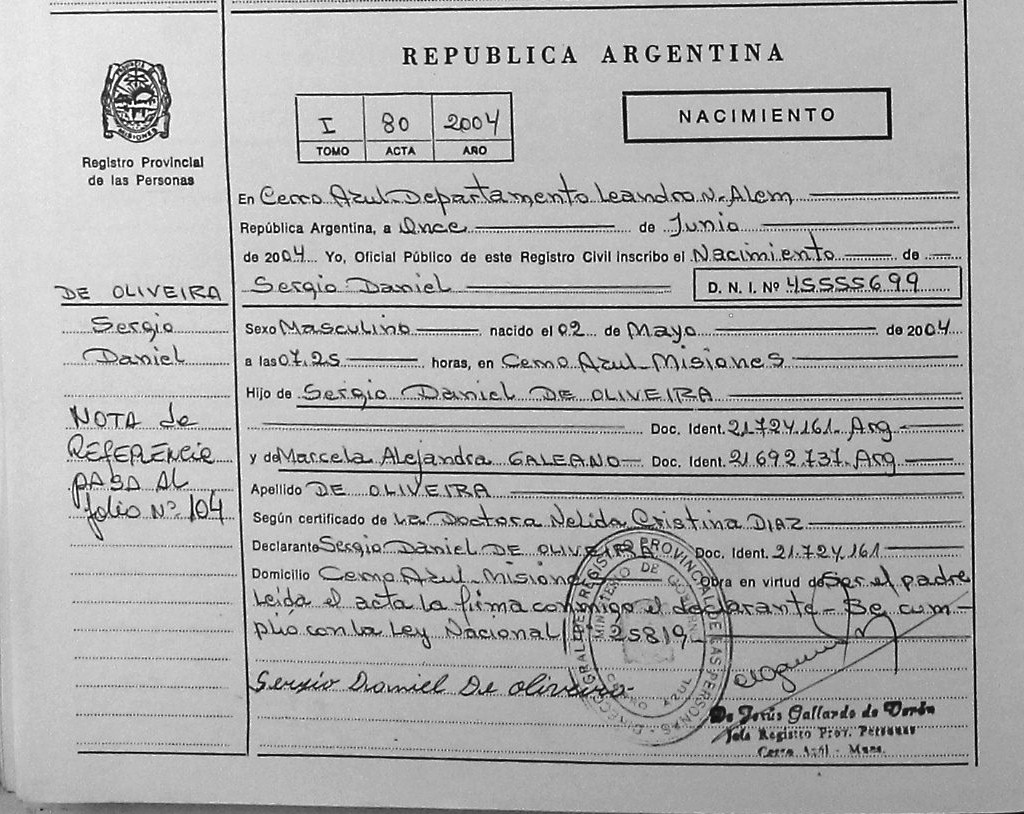 REPUBLICA ARGENTINA
PROVINCIA DE MISIONES
Registro Provincial
de las Personas
I 80 2004
TOMO ACTA AÑO
NACIMIENTO
En Cerro Azul - Departamento Leandro N. Alem
República Argentina, a Once de Junio
de 2004 Yo, Oficial Público de este Registro Civil inscribo el Nacimiento de
Sergio Daniel D. N. I. Nº 45555699
DE OLIVEIRA
Sergio
Daniel
NOTA de
REFERENCIA
PASA AL
folio Nº 104
Sexo Masculino nacido el 02 de Mayo de 2004
a las 07.25 horas, en Cerro Azul - Misiones
Hijo de Sergio Daniel DE OLIVEIRA
Doc. Ident. 21.724.161. Arg -
y de Marcela Alejandra GALEANO Doc. Ident. 21.692.737. Arg
Apellido DE OLIVEIRA
Según certificado de La Doctora Nelida Cristina DIAZ
Declarante Sergio Daniel DE OLIVEIRA Doc. Ident. 21.724.161
Domicilio Cerro Azul - Misiones Obra en virtud de Ser el padre
Leida el acta la firma conmigo el declarante - Se cum-
plio con la Ley Nacional Nº 25819 -
Sergio Daniel De oliveira
DIRECC. GRAL. DEL REGISTRO PROVINCIAL DE LAS PERSONAS
MINISTERIO DE GOBIERNO
CERRO AZUL
De Jesús Gallardo de Verón
Jefe Registro Prov. Personas
Cerro Azul - Mnes.